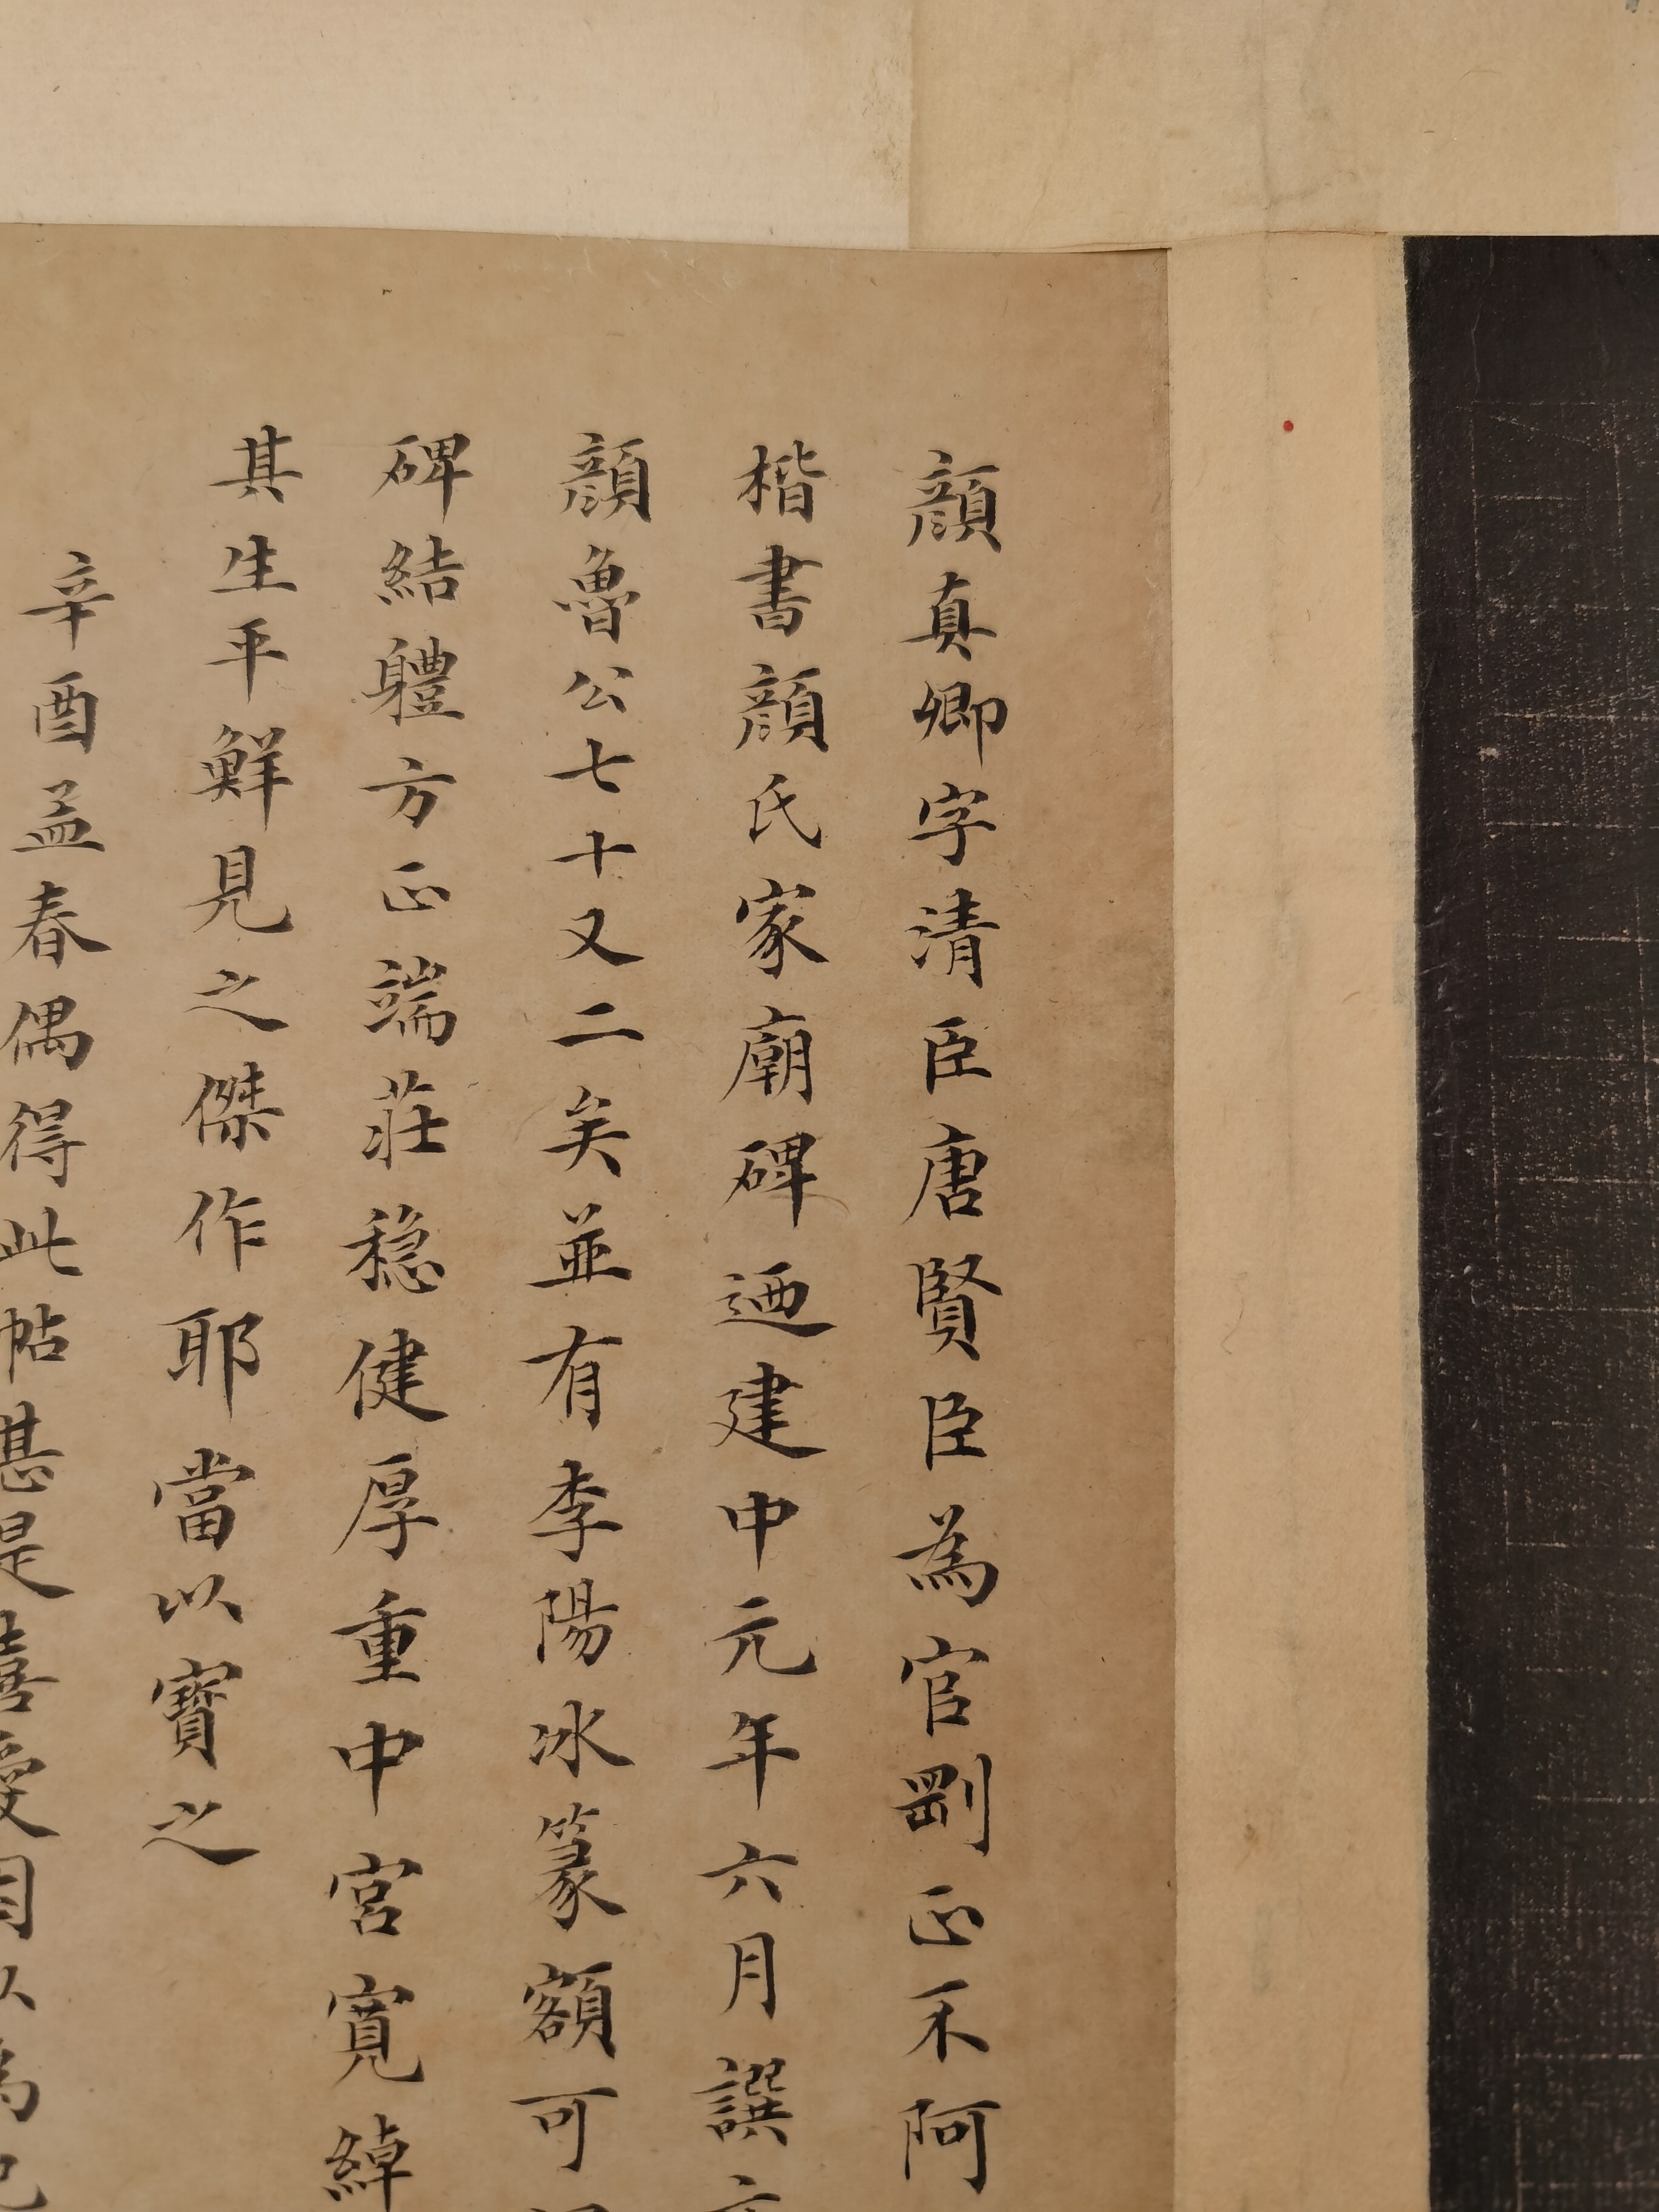 顏真卿字清臣唐賢臣為官剛正不阿
楷書顏氏家廟碑迺建中元年六月譔
顏魯公七十又二矣並有李陽冰篆額可
碑結軆方正端莊穏健厚重中宮寬綽
其生平鮮見之傑作耶當以寶之
辛酉孟春偶得此帖甚是喜愛因以為